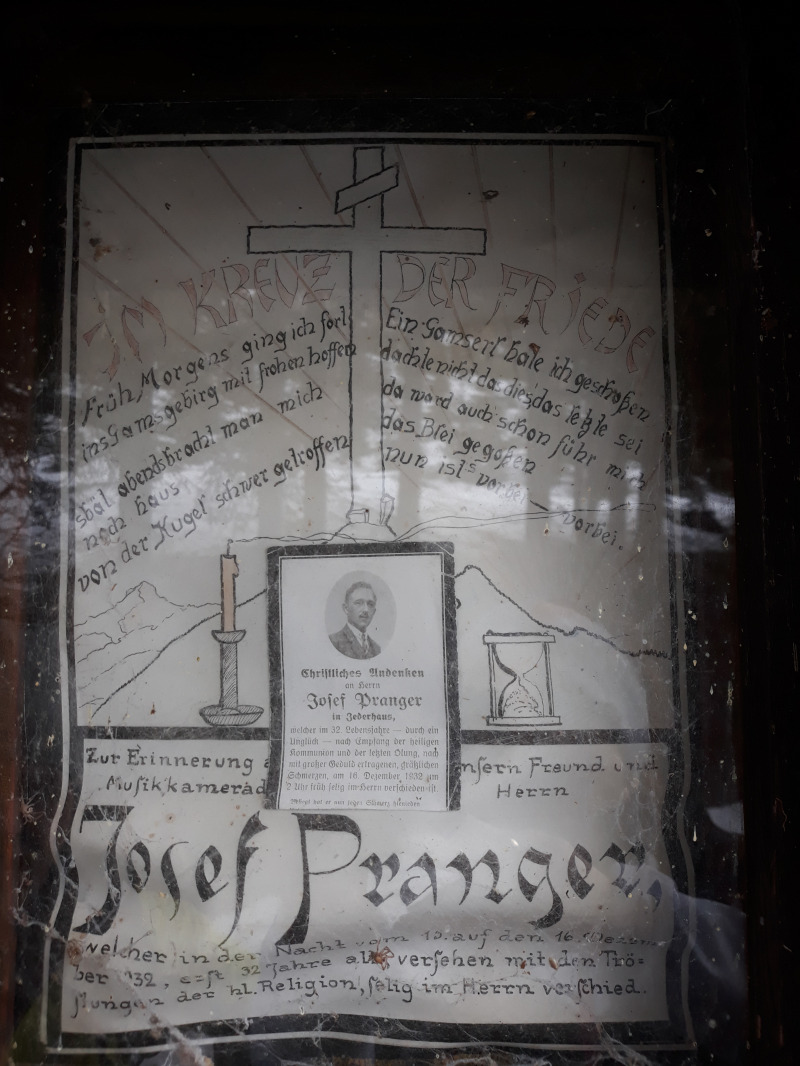 IM KREUZ DER FRIEDE
Früh Morgens ging ich fort
ins Gamsgebirg mit frohen hoffen
spät abends bracht man mich
nach haus
von der Kugel schwer getroffen
Ein Gamserl hate ich geschoßen
dachte nicht das dies das letzte sei
da ward auch schon führ mich
das Blei gegoßen
nun ist's vorbei – vorbei.
Christliches Andenken
an Herrn
Josef Pranger
in Jederhaus,
welcher im 32. Lebensjahre — durch ein
Unglück — nach Empfang der heiligen
Kommunion und der letzten Ölung, nach
mit großer Geduld ertragenen, gräßlichen
Schmerzen, am 16. Dezember 1932 um
2 Uhr früh selig im Herrn verschieden ist.
hat er nun
Zur Erinnerung unsern Freund und
Musikkamerad Herrn
Josef Pranger,
welcher in der Nacht vom 15. auf den 16. Dezem-
ber 1932, erst 32 Jahre alt versehen mit den Trö=
stungen der hl. Religion, selig im Herrn verschied.